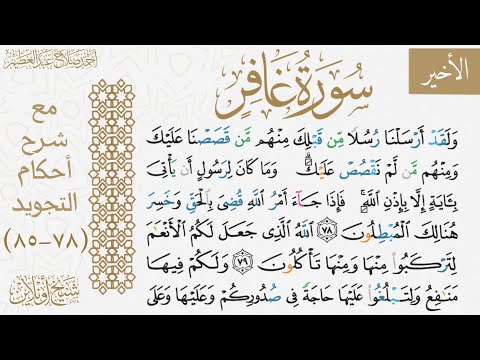 الأخير
سُورَةُ غَافِرٍ
أحمد صلاح عبد العظيم
مع
شرح
أحكام
التجويد
(٧٨-٨٥)
شيخ أونلاين
وَلَقَدْ أَرْسَلْنَا رُسُلًا مِّن قَبْلِكَ مِنْهُم مَّن قَصَصْنَا عَلَيْكَ
وَمِنْهُم مَّن لَّمْ نَقْصُصْ عَلَيْكَ ۗ وَمَا كَانَ لِرَسُولٍ أَن يَأْتِىَ
بِـَٔايَةٍ إِلَّا بِإِذْنِ ٱللَّهِ ۚ فَإِذَا جَآءَ أَمْرُ ٱللَّهِ قُضِىَ بِٱلْحَقِّ وَخَسِرَ
هُنَالِكَ ٱلْمُبْطِلُونَ ٧٨ ٱللَّهُ ٱلَّذِى جَعَلَ لَكُمُ ٱلْأَنْعَٰمَ
لِتَرْكَبُوا۟ مِنْهَا وَمِنْهَا تَأْكُلُونَ ٧٩ وَلَكُمْ فِيهَا
مَنَٰفِعُ وَلِتَبْلُغُوا۟ عَلَيْهَا حَاجَةً فِى صُدُورِكُمْ وَعَلَيْهَا وَعَلَى